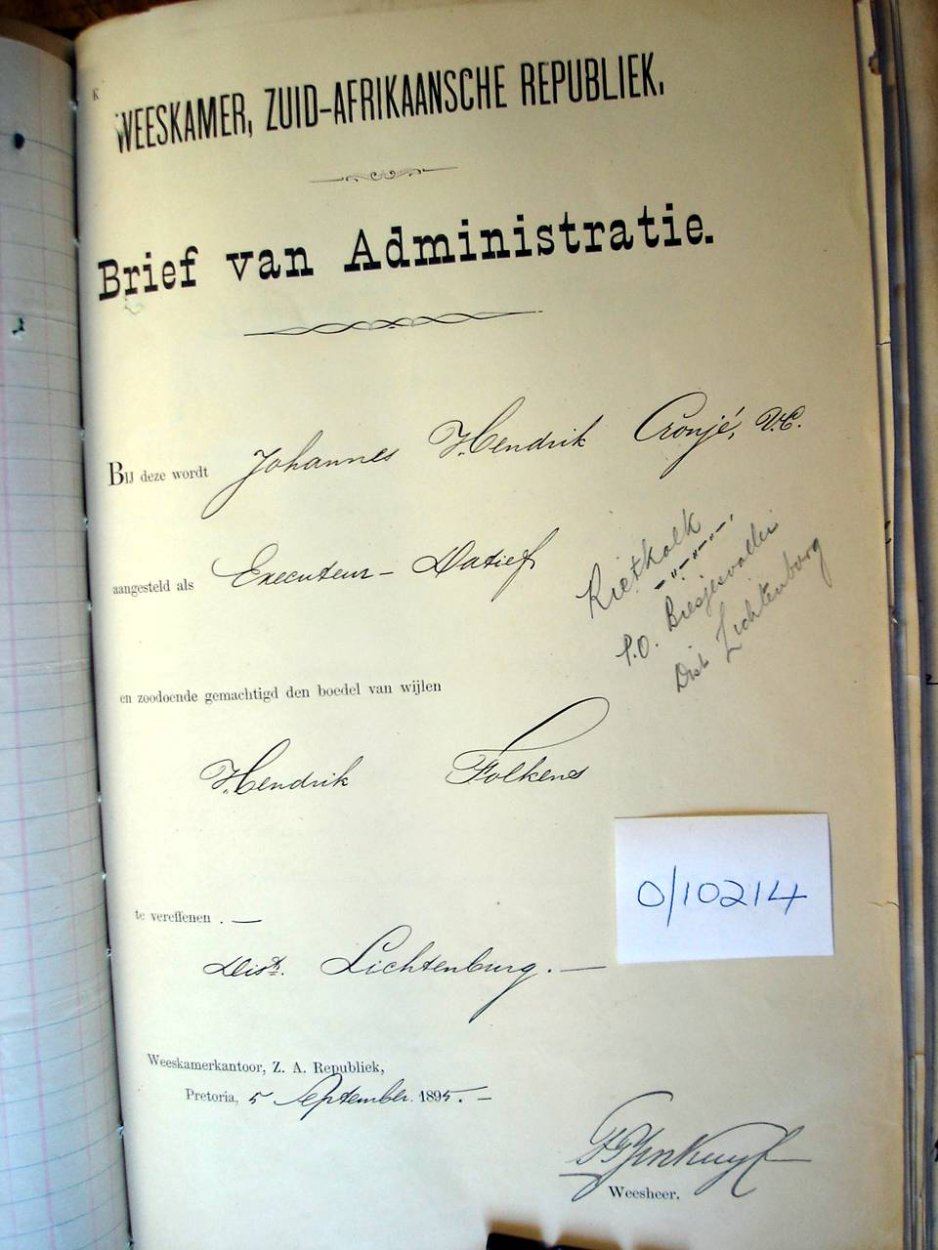 WEESKAMER, ZUID-AFRIKAANSCHE REPUBLIEK.
Brief van Administratie.
BIJ deze wordt Johannes Hendrik Cronjé, V.C.
aangesteld als Executeur-Datief
Rietkolk
P.O. Biesjesvallei
Dist Lichtenburg
en zoodoende gemachtigd den boedel van wijlen
Hendrik Folkens
0/10214
te vereffenen . —
Dist. Lichtenburg. —
Weeskamerkantoor, Z. A. Republiek,
Pretoria, 5 September 1895. —
Weesheer.